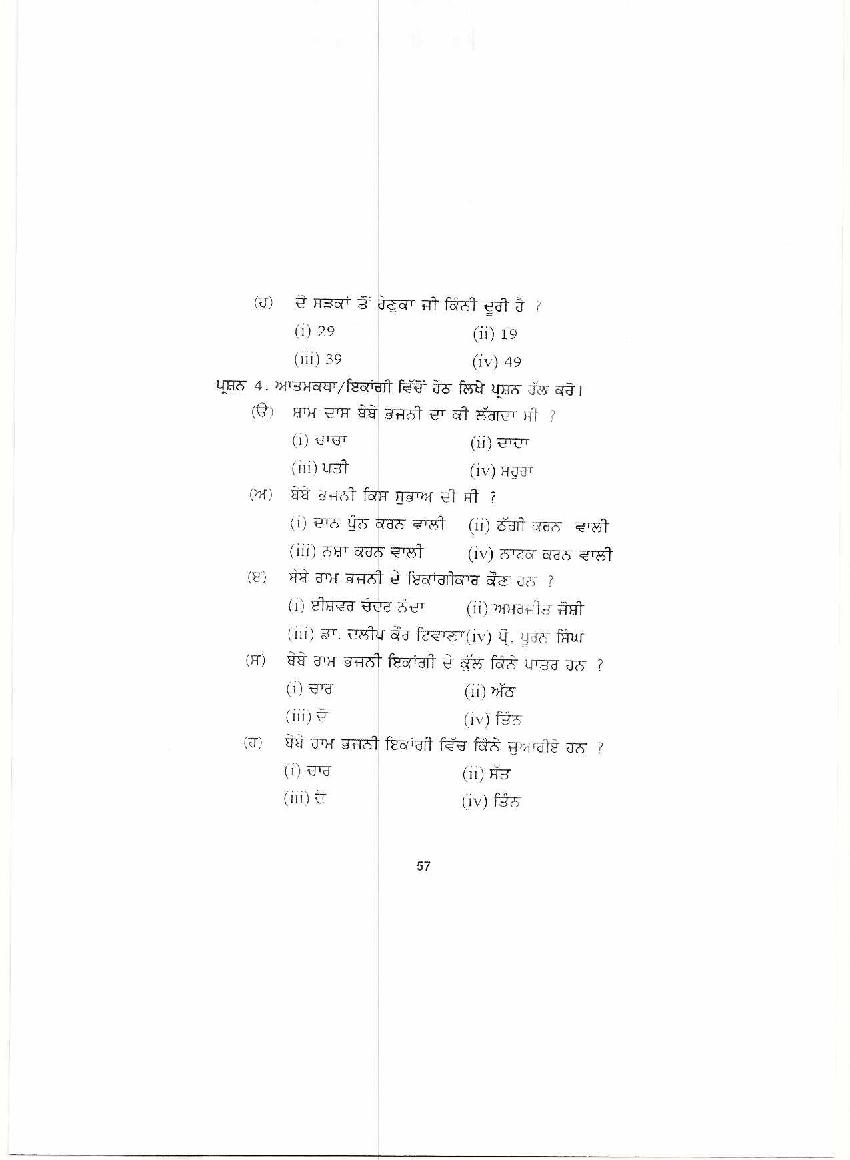 (ਹ) ਦੋ ਸੜਕਾਂ ਤੋਂ ਰੇਣੁਕਾ ਜੀ ਕਿੰਨੀ ਦੂਰੀ ਹੈ ?
(i) 29 (ii) 19
(iii) 39 (iv) 49
ਪ੍ਰਸ਼ਨ 4. ਆਤਮਕਥਾ/ਇਕਾਂਗੀ ਵਿੱਚੋਂ ਹੇਠ ਲਿਖੇ ਪ੍ਰਸ਼ਨ ਹੱਲ ਕਰੋ।
(ੳ) ਸ਼ਾਮ ਦਾਸ ਬੇਬੇ ਭਜਨੀ ਦਾ ਕੀ ਲੱਗਦਾ ਸੀ ?
(i) ਚਾਚਾ (ii) ਦਾਦਾ
(iii) ਪਤੀ (iv) ਸਹੁਰਾ
(ਅ) ਬੇਬੇ ਭਜਨੀ ਕਿਸ ਸੁਭਾਅ ਦੀ ਸੀ ?
(i) ਦਾਨ ਪੁੰਨ ਕਰਨ ਵਾਲੀ (ii) ਠੱਗੀ ਕਰਨ ਵਾਲੀ
(iii) ਨਸ਼ਾ ਕਰਨ ਵਾਲੀ (iv) ਨਾਟਕ ਕਰਨ ਵਾਲੀ
(ੲ) ਬੇਬੇ ਰਾਮ ਭਜਨੀ ਦੇ ਇਕਾਂਗੀਕਾਰ ਕੌਣ ਹਨ ?
(i) ਈਸ਼ਵਰ ਚੰਦਰ ਨੰਦਾ (ii) ਅਮਰਜੀਤ ਜੋਸ਼ੀ
(iii) ਡਾ. ਦਲੀਪ ਕੌਰ ਟਿਵਾਣਾ(iv) ਪ੍ਰੋ. ਪੂਰਨ ਸਿੰਘ
(ਸ) ਬੇਬੇ ਰਾਮ ਭਜਨੀ ਇਕਾਂਗੀ ਦੇ ਕੁੱਲ ਕਿੰਨੇ ਪਾਤਰ ਹਨ ?
(i) ਚਾਰ (ii) ਅੱਠ
(iii) ਦੋ (iv) ਤਿੰਨ
(ਹ) ਬੇਬੇ ਰਾਮ ਭਜਨੀ ਇਕਾਂਗੀ ਵਿੱਚ ਕਿੰਨੇ ਜੁਆਰੀਏ ਹਨ ?
(i) ਚਾਰ (ii) ਸੱਤ
(iii) ਦੋ (iv) ਤਿੰਨ
57